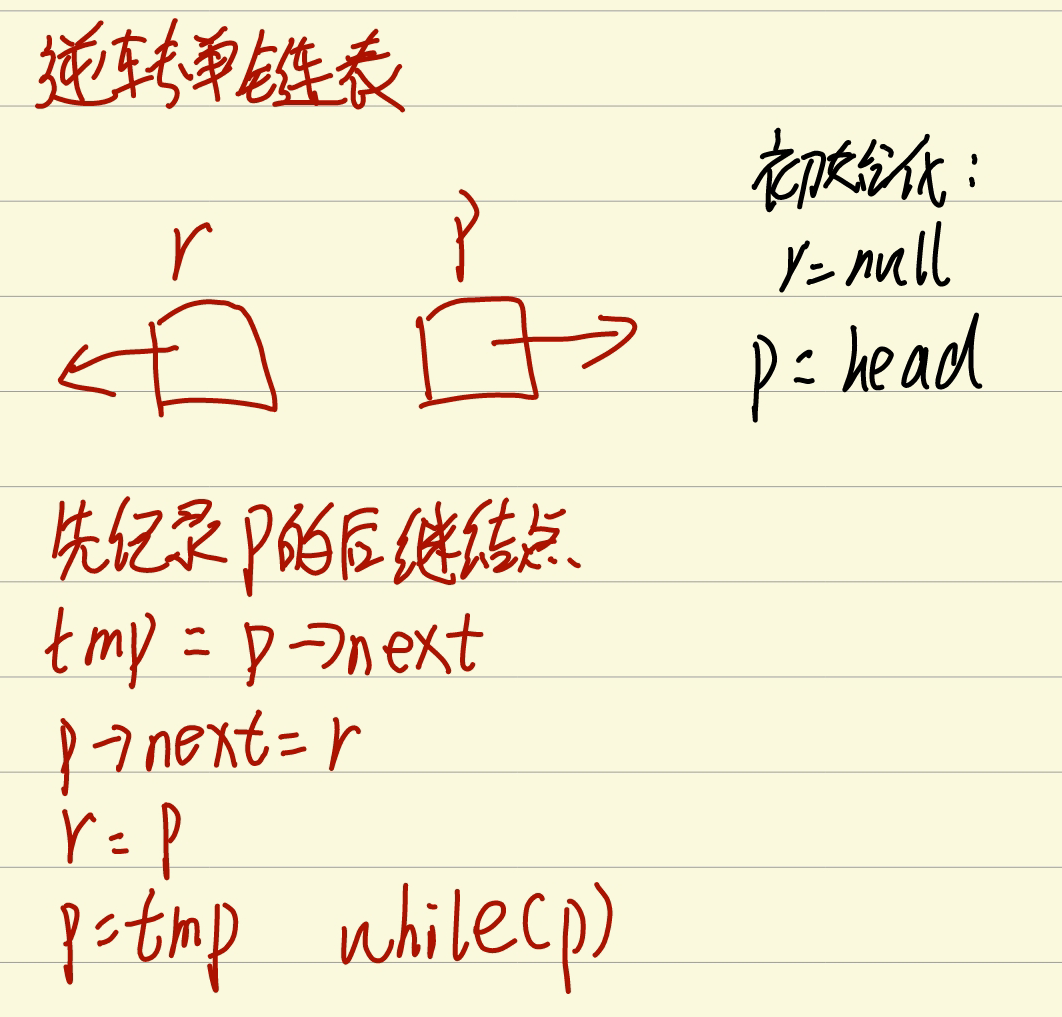 逆转单链表
初始化:
r=null
p=head
r
p
先纪录p的后继结点
tmp = p→next
p→next=r
r=p
p=tmp while(p)